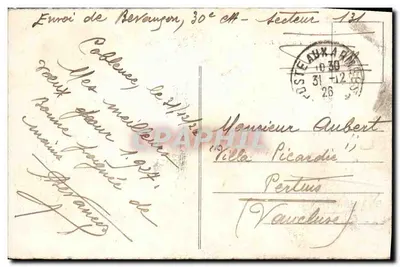 Envoi de Bevançon, 30e CA - Secteur 131
POSTE AUX ARMEES
10 30
31 - 12
26
Coblence, le 31/12/26
Mes meilleurs
voeux pour 1927
Bonne poignée de
mains
Monsieur Aubert
"Villa Picardie"
Pertuis
(Vaucluse)